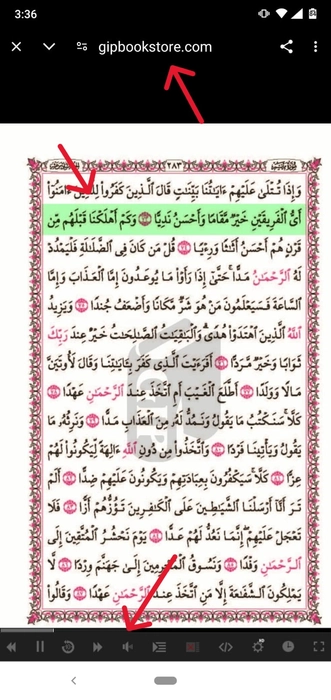 3:36
gipbookstore.com
٢٨٣
وَإِذَا تُتْلَىٰ عَلَيْهِمْ ءَايَٰتُنَا بَيِّنَٰتٍ قَالَ ٱلَّذِينَ كَفَرُوا۟ لِلَّذِينَ ءَامَنُوٓا۟
أَىُّ ٱلْفَرِيقَيْنِ خَيْرٌ مَّقَامًا وَأَحْسَنُ نَدِيًّا ٧٣ وَكَمْ أَهْلَكْنَا قَبْلَهُم مِّن
قَرْنٍ هُمْ أَحْسَنُ أَثَٰثًا وَرِءْيًا ٧٤ قُلْ مَن كَانَ فِى ٱلضَّلَٰلَةِ فَلْيَمْدُدْ
لَهُ ٱلرَّحْمَٰنُ مَدًّا حَتَّىٰٓ إِذَا رَأَوْا۟ مَا يُوعَدُونَ إِمَّا ٱلْعَذَابَ وَإِمَّا
ٱلسَّاعَةَ فَسَيَعْلَمُونَ مَنْ هُوَ شَرٌّ مَّكَانًا وَأَضْعَفُ جُندًا ٧٥ وَيَزِيدُ
ٱللَّهُ ٱلَّذِينَ ٱهْتَدَوْا۟ هُدًى وَٱلْبَٰقِيَٰتُ ٱلصَّٰلِحَٰتُ خَيْرٌ عِندَ رَبِّكَ
ثَوَابًا وَخَيْرٌ مَّرَدًّا ٧٦ أَفَرَءَيْتَ ٱلَّذِى كَفَرَ بِـَٔايَٰتِنَا وَقَالَ لَأُوتَيَنَّ
مَالًا وَوَلَدًا ٧٧ أَطَّلَعَ ٱلْغَيْبَ أَمِ ٱتَّخَذَ عِندَ ٱلرَّحْمَٰنِ عَهْدًا ٧٨
كَلَّا سَنَكْتُبُ مَا يَقُولُ وَنَمُدُّ لَهُۥ مِنَ ٱلْعَذَابِ مَدًّا ٧٩ وَنَرِثُهُۥ مَا
يَقُولُ وَيَأْتِينَا فَرْدًا ٨٠ وَٱتَّخَذُوا۟ مِن دُونِ ٱللَّهِ ءَالِهَةً لِّيَكُونُوا۟ لَهُمْ
عِزًّا ٨١ كَلَّا سَيَكْفُرُونَ بِعِبَادَتِهِمْ وَيَكُونُونَ عَلَيْهِمْ ضِدًّا ٨٢ أَلَمْ
تَرَ أَنَّآ أَرْسَلْنَا ٱلشَّيَٰطِينَ عَلَى ٱلْكَٰفِرِينَ تَؤُزُّهُمْ أَزًّا ٨٣ فَلَا
تَعْجَلْ عَلَيْهِمْ إِنَّمَا نَعُدُّ لَهُمْ عَدًّا ٨٤ يَوْمَ نَحْشُرُ ٱلْمُتَّقِينَ إِلَى
ٱلرَّحْمَٰنِ وَفْدًا ٨٥ وَنَسُوقُ ٱلْمُجْرِمِينَ إِلَىٰ جَهَنَّمَ وِرْدًا ٨٦ لَّا
يَمْلِكُونَ ٱلشَّفَٰعَةَ إِلَّا مَنِ ٱتَّخَذَ عِندَ ٱلرَّحْمَٰنِ عَهْدًا ٨٧ وَقَالُوا۟